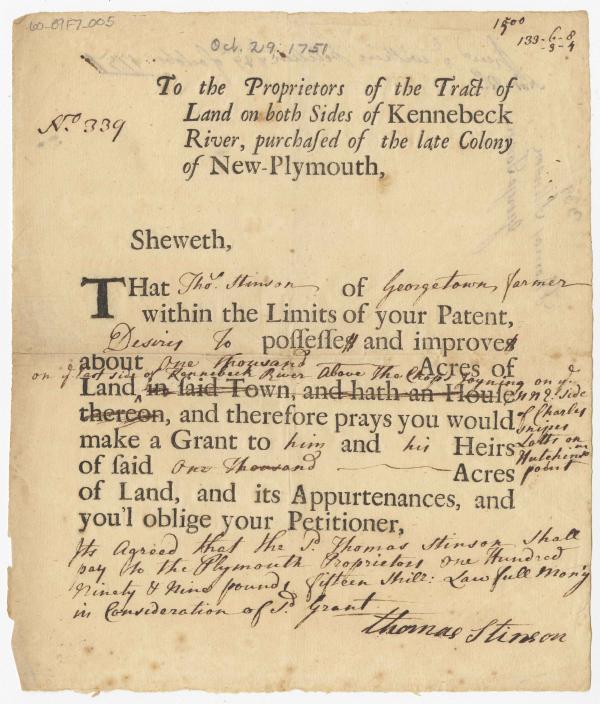 60-89F7_005
Oct. 29. 1751
1500
133-6-8
To the Proprietors of the Tract of
Land on both Sides of Kennebeck
Nº. 339
River, purchaſed of the late Colony
of New-Plymouth,
Sheweth,
THat Thoˢ. Stinson of Georgetown farmer
within the Limits of your Patent,
Desires To poſſeſſes and improves
about One thousand Acres of
on yᵉ East side of Kennebeck River Above The Chops Joyning on yᵉ
Land in said Town, and hath an Houſe
side
thereon, and therefore prays you would
of Charles
Snipes
make a Grant to him and his Heirs
Lotts on
of ſaid One Thousand Acres
point
of Land, and its Appurtenances, and
you'l oblige your Petitioner,
Its Agreed that the Sᵈ. Thomas Stinson Shall
pay to the Plymouth Proprietors One Hundred
Ninety & Nine pounds fifteen Shill: Lawfull Mon'y
in Consideration of Sᵈ Grant
Thomas Stinson